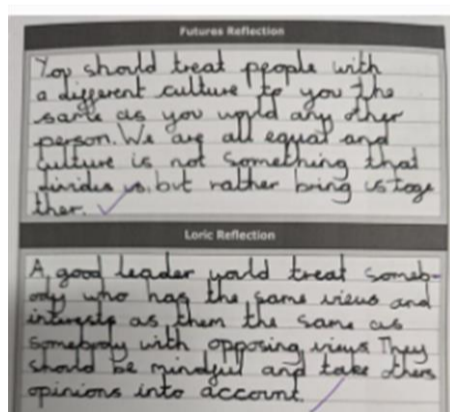 Futures Reflection
You should treat people with
a different culture to you the
same as you would any other
person. We are all equal and
culture is not something that
divides us, but rather bring us toge
ther.
Loric Reflection
A good leader would treat someb-
ody who has the same views and
interests as them the same as
somebody with opposing views They
should be mindful and take others
opinions into account.